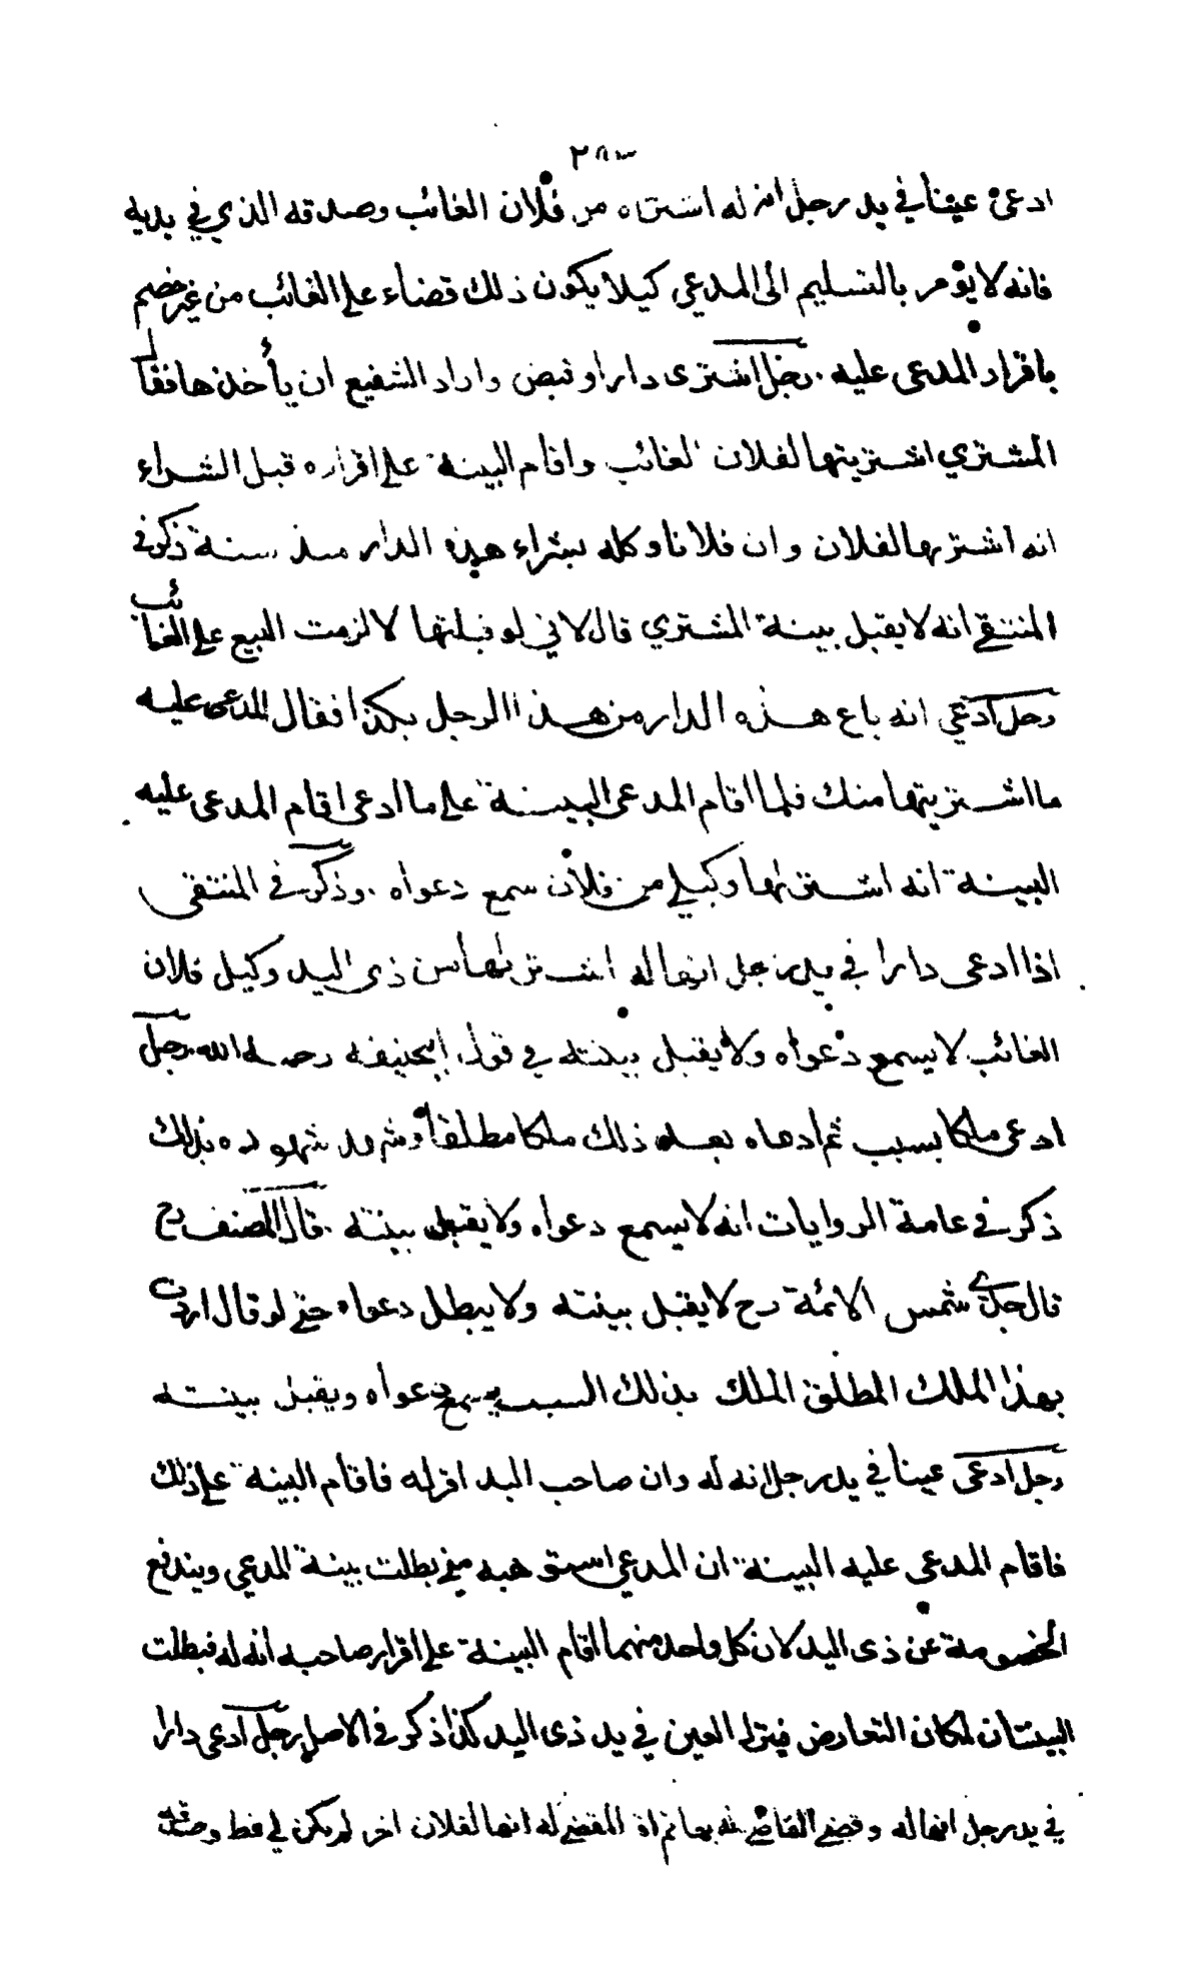 ادعى عينا في يد رجل انه له اشتراه من فلان الغائب وصدقه الذي في يديه
فانه لا يؤمر بالتسليم الى المدعي كيلا يكون ذلك قضاء على الغائب من غير خصم
باقرار المدعى عليه . رجل اشترى دارا وقبض واراد الشفيع ان يأخذها فقال
المشتري اشتريتها لفلان الغائب واقام البينة على اقراره قبل الشراء
انه اشتريها لفلان وان فلانا وكله بشراء هذه الدار منذ سنة ذكر في
المنتقى انه لا يقبل بينة المشتري قال لاني لو قبلتها لالزمت البيع على الغائب
رجل ادعي انه باع هذه الدار من هذا الرجل بكذا فقال المدعى عليه
ما اشتريتها منك فلما اقام المدعى البينة على ما ادعى اقام المدعى عليه
البينة انه اشتراها وكيلي من فلان سمع دعواه . وذكر في المنتقى
اذا ادعى دارا في يد رجل انها له اشتريتها من ذى اليد وكيل فلان
الغائب لا يسمع دعواه ولا يقبل بينته في قول ابيحنيفه رحمه الله . رجل
ادعى ملكا بسبب ثم ادعاه بعد ذلك ملكا مطلقا وشهد شهوده بذلك
ذكر في عامة الروايات انه لا يسمع دعواه ولا يقبل بينته . قال المصنف رح
قال جدي شمس الائمة رح لا يقبل بينته ولا يبطل دعواه حتى لو قال اردت
بهذا الملك المطلق الملك بذلك السبب يسمع دعواه ويقبل بينته
رجل ادعى عينا في يد رجل انه له وان صاحب اليد اقر له فاقام البينة على ذلك
فاقام المدعى عليه البينة ان المدعي استوهبه مني بطلت بينة المدعي ويندفع
الخصومة عن ذى اليد لان كل واحد منهما اقام البينة على اقرار صاحبه انه له فبطلت
البينتان لمكان التعارض فيترك العين في يد ذى اليد كذا ذكر في الاصل رجل ادعى دارا
في يد رجل انها له وقضى القاضي له بها ثم اقر المقضى له انها لفلان اخر لم يكن لي قط وصدقه